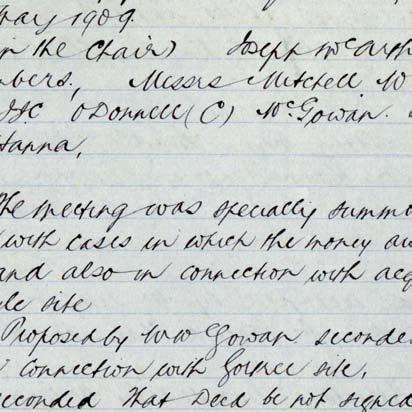 May 1909.
in the Chair) Joseph McCarth
mbers, Messrs Mitchell W
O'Donnell (C) McGowan.
Hanna,
The meeting was specially summo
with cases in which the money aw
and also in connection with acq
site
Proposed by McGowan seconde
connection with site,
seconded That Deed be not signed